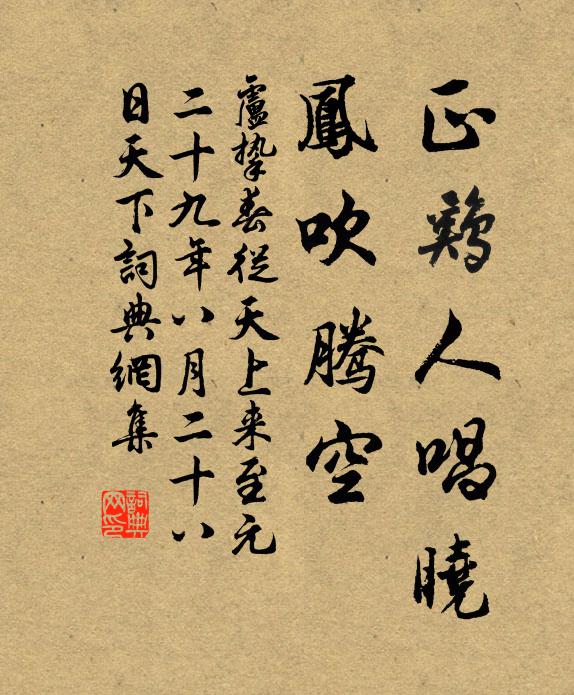 正鷄人唱曉
鳳吹騰空
盧摯春從天上来至元
二十九年八月二十八
日天下詞典網集
詞典网印